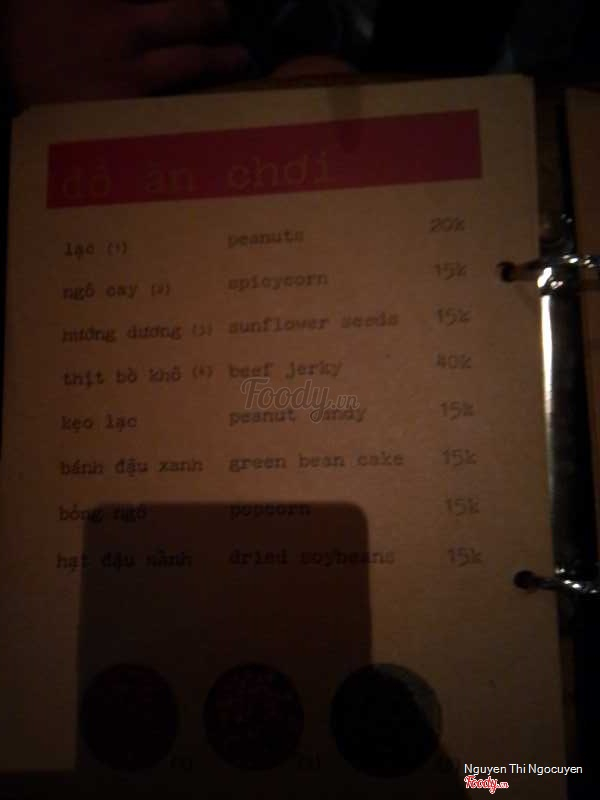 đồ ăn chơi
lạc (1) peanuts 20k
ngô cay (2) spicycorn 15k
hướng dương (3) sunflower seeds 15k
thịt bò khô (4) beef jerky 40k
kẹo lạc peanut candy 15k
bánh đậu xanh green bean cake 15k
bỏng ngô popcorn 15k
hạt đậu nành dried soybeans 15k
Foody.vn
Nguyen Thi Ngocuyen
Foody.vn